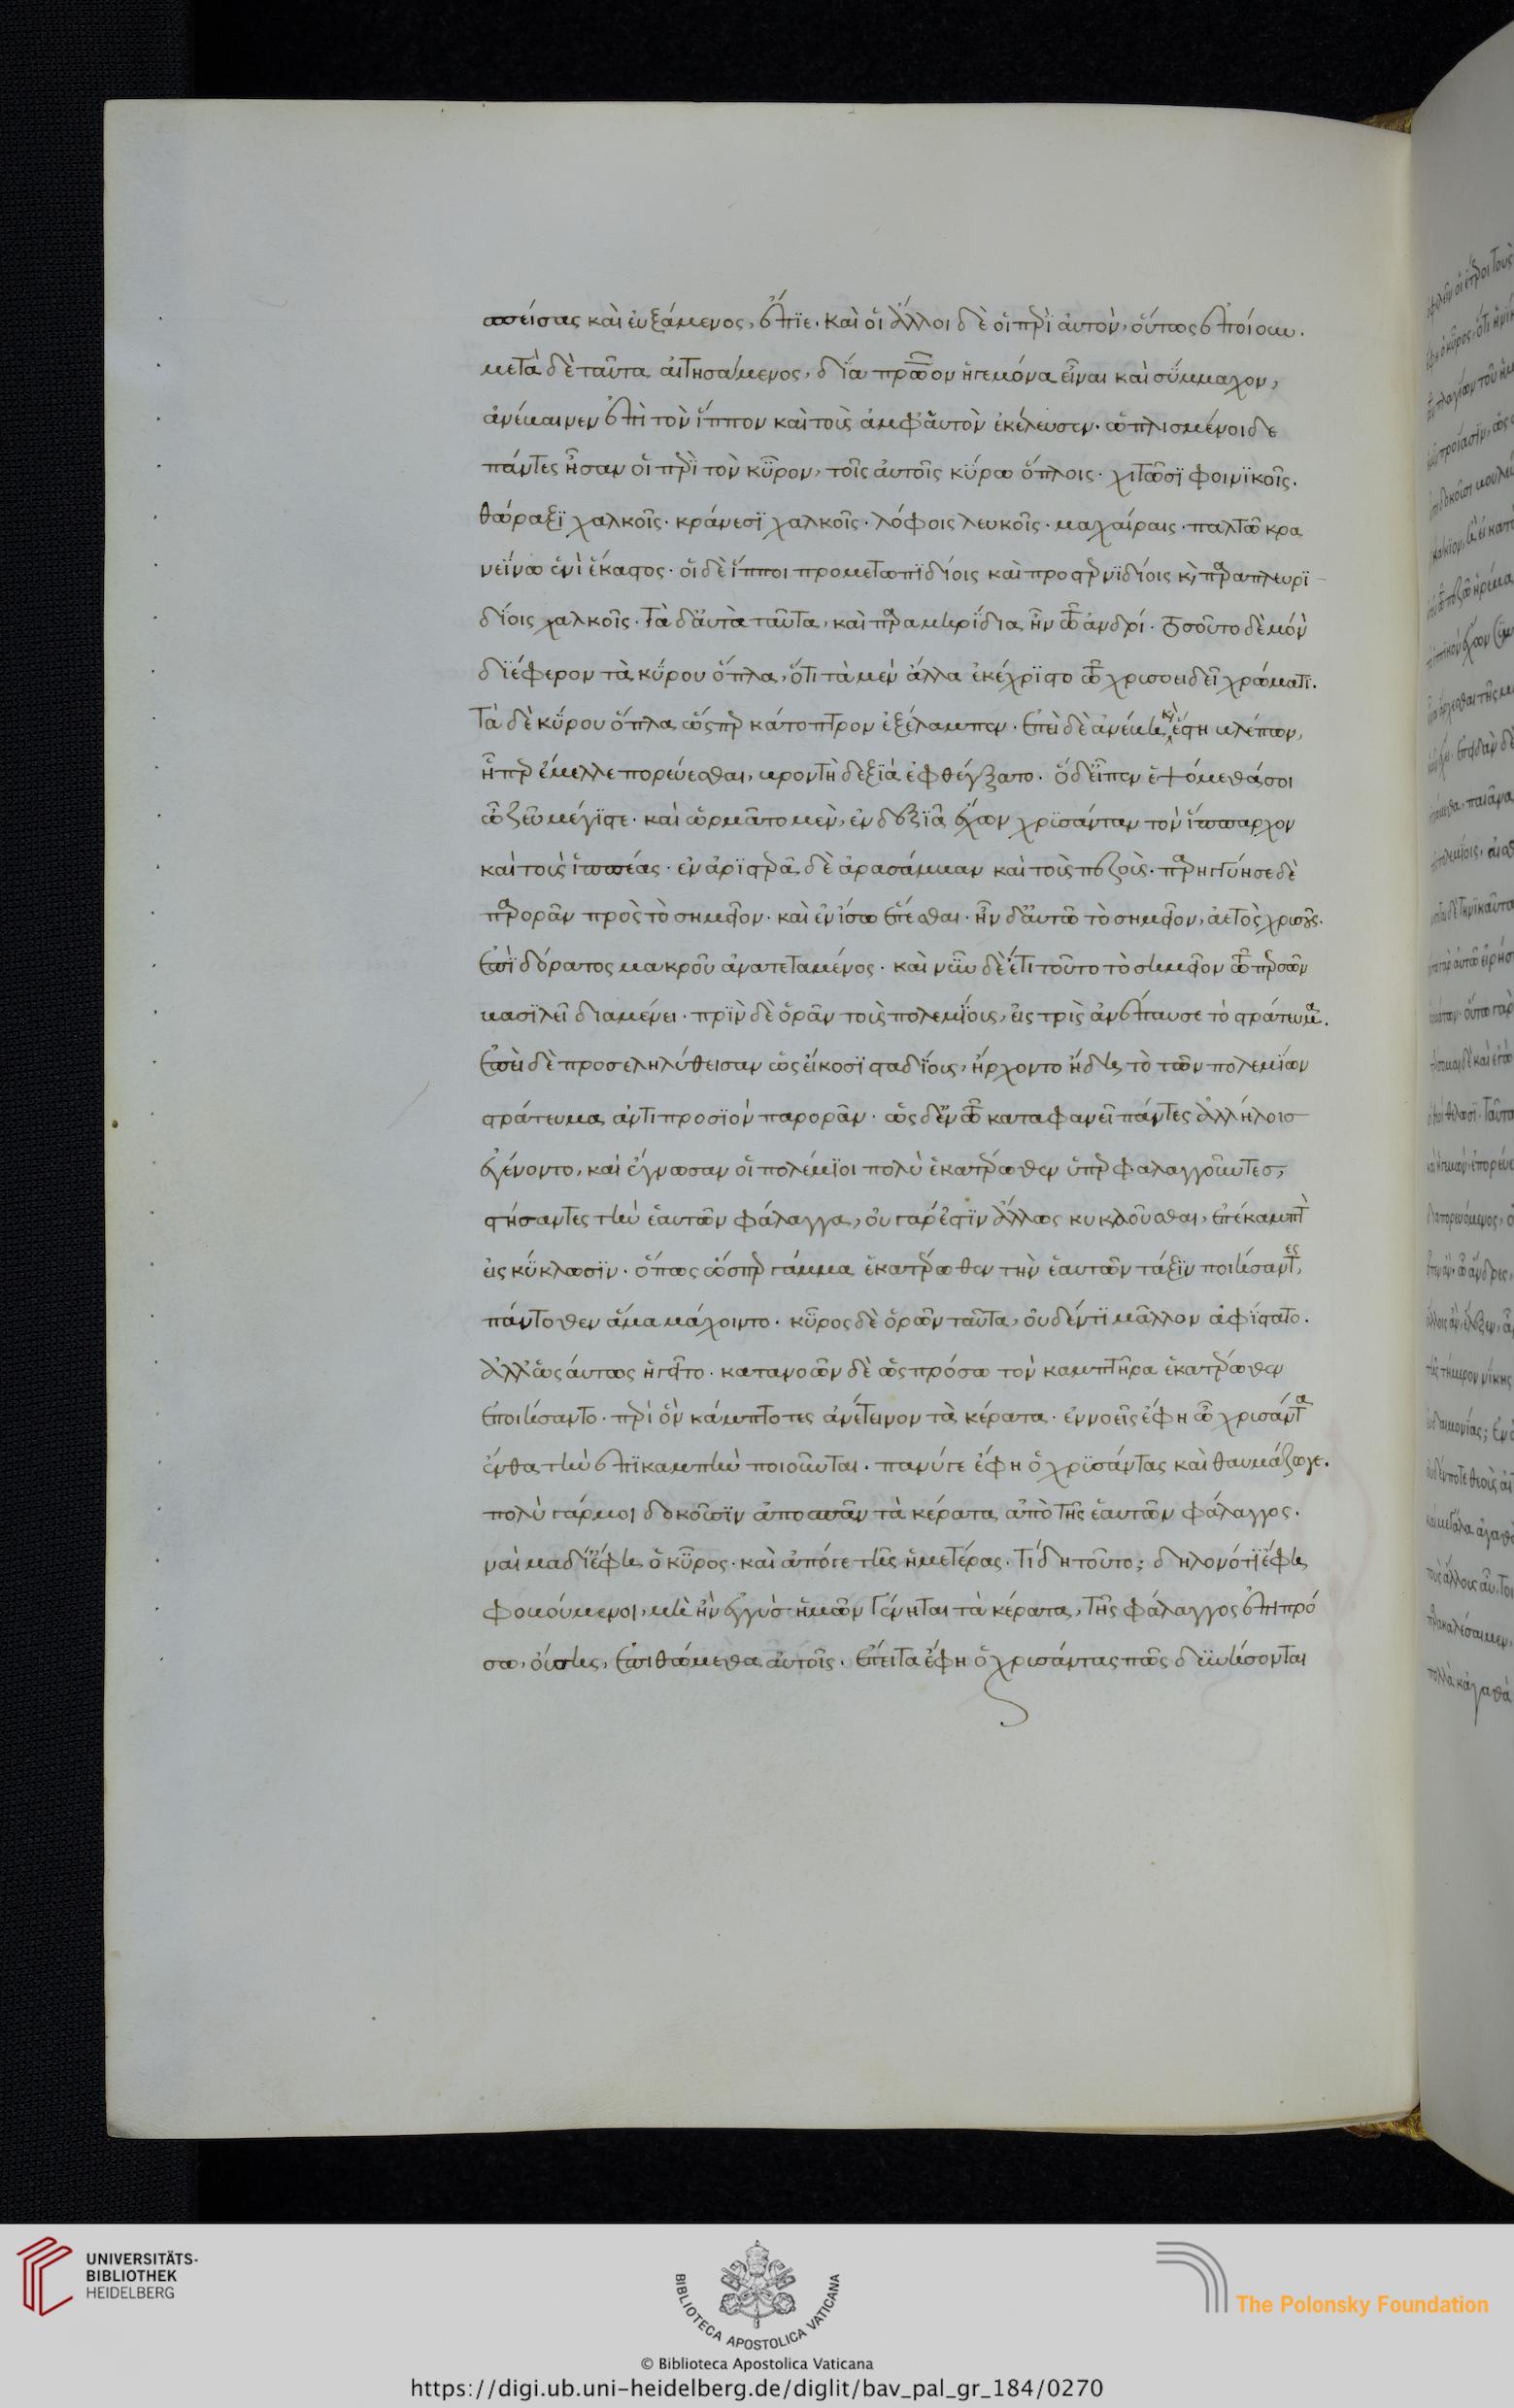 σπείσας καὶ εὐξάμενος, ἔπϊε. καὶ οἱ ἄλλοι δὲ οἱ περὶ αὐτὸν, οὕτως ἐποίουν.
μετὰ δὲ ταῦτα αἰτησάμενος, δία πρῶον ἡγεμόνα εἶναι καὶ σύμμαχον,
ἀνέβαινεν ἐπὶ τὸν ἵππον καὶ τοὺς ἀμφ' αὐτὸν ἐκέλευσεν. ὡπλισμένοι δὲ
πάντες ἦσαν οἱ περὶ τὸν κῦρον, τοῖς αὐτοῖς κύρω ὅπλοις. χιτῶσϊ φοινϊκοῖς.
θώραξϊ χαλκοῖς. κράνεσϊ χαλκοῖς. λόφοις λευκοῖς. μαχαίραις. παλτῶ κρα
νεΐνω ἑνὶ ἕκαστος. οἱ δὲ ἵπποι προμετωπϊδίοις καὶ προστερνϊδίοις καὶ παραπλευρϊ
δίοις χαλκοῖς. τὰ δ' αὐτὰ ταῦτα, καὶ παραμηρίδια ἦν τῶ ἀνδρί. τοσοῦτο δὲ μόνον
δϊέφερον τὰ κύρου ὅπλα, ὅτι τὰ μὲν ἄλλα ἐκέχρϊστο τῶ χρυσοειδεῖ χρώματϊ.
τὰ δὲ κύρου ὅπλα ὥσπερ κάτοπτρον ἐξέλαμπεν. ἐπεὶ δὲ ἀνέβη καὶ ἔστη βλέπων,
ἧπερ ἔμελλε πορεύεσθαι, βροντὴ δεξϊὰ ἐφθέγξατο. ὁ δ' εἶπεν ἑψόμεθά σοι
ὦ ζεῦ μέγϊστε. καὶ ὡρμᾶτο μὲν, ἐν δεξϊᾶ ἔχων χρϋσάνταν τὸν ἵππαρχον
καὶ τοὺς ἱππέας. ἐν ἀρϊστερᾶ δὲ ἀρασάμβαν καὶ τοὺς πεζοὺς. παρηγγύησε δὲ
παρορᾶν πρὸς τὸ σημεῖον. καὶ ἐν ἴσω ἕπεσθαι. ἦν δ' αὐτῶ τὸ σημεῖον, ἀετὸς χρυσοῦς.
ἐπὶ δόρατος μακροῦ ἀνατεταμένος. καὶ νῦν δὲ ἔτι τοῦτο τὸ σημεῖον τῶ περσῶν
βασϊλεῖ διαμένει. πρὶν δὲ ὁρᾶν τοὺς πολεμίους, εἰς τρὶς ἀνέπαυσε τὸ στράτευμα.
ἐπεὶ δὲ προσεληλύθεισαν ὡς εἴκοσϊ σταδίους, ἤρχοντο ἤδη τὸ τῶν πολεμίων
στράτευμα ἀντιπροσϊὸν παρορᾶν. ὡς δ' ἐν τῶ καταφανεῖ πάντες ἀλλήλοισ
ἐγένοντο, καὶ ἔγνωσαν οἱ πολέμϊοι πολὺ ἑκατέρωθεν ὑπερφαλαγγοῦντεσ,
στήσαντες τὴν ἑαυτῶν φάλαγγα, οὐ γάρ ἐστϊν ἄλλως κυκλοῦσθαι, ἐπέκαμπτον
εἰς κύκλωσϊν. ὅπως ὥσπερ γάμμα ἑκατέρωθεν τὴν ἑαυτῶν τάξϊν ποιήσαντες,
πάντοθεν ἅμα μάχοιντο. κῦρος δὲ ὁρῶν ταῦτα, οὐδέν τϊ μᾶλλον ἀφίστατο.
ἀλλ' ὡσαύτως ἡγεῖτο. κατανοῶν δὲ ὡς πρόσω τὸν καμπτῆρα ἑκατέρωθεν
ἐποιήσαντο. περὶ ὃν κάμπτοτες ἀνέτεινον τὰ κέρατα. ἐννοεῖς ἔφη ὦ χρυσάντα
ἔνθα τὴν ἐπϊκαμπὴν ποιοῦνται. πανύγε ἔφη ὁ χρϋσάντας καὶ θαυμάζωγε.
πολὺ γάρ μοι δοκοῦσϊν ἀποσπᾶν τὰ κέρατα ἀπὸ τῆς ἑαυτῶν φάλαγγος.
ναὶ μὰ δί' ἔφη ὁ κῦρος. καὶ ἀπό γε τῆς ἡμετέρας. τί δὴ τοῦτο; δηλονότϊ ἔφη
φοβούμενοι, μὴ ἢν ἐγγὺσ ἡμῶν γένηται τὰ κέρατα, τῆς φάλαγγος ἔτι πρό
σω, οὔσης, ἐπιθώμεθα αὐτοῖς. ἔπειτα ἔφη ὁ χρυσάντας πῶς δυνήσονται
UNIVERSITÄTS-
BIBLIOTHEK
HEIDELBERG
BIBLIOTECA APOSTOLICA VATICANA
The Polonsky Foundation
© Biblioteca Apostolica Vaticana
https://digi.ub.uni-heidelberg.de/diglit/bav_pal_gr_184/0270